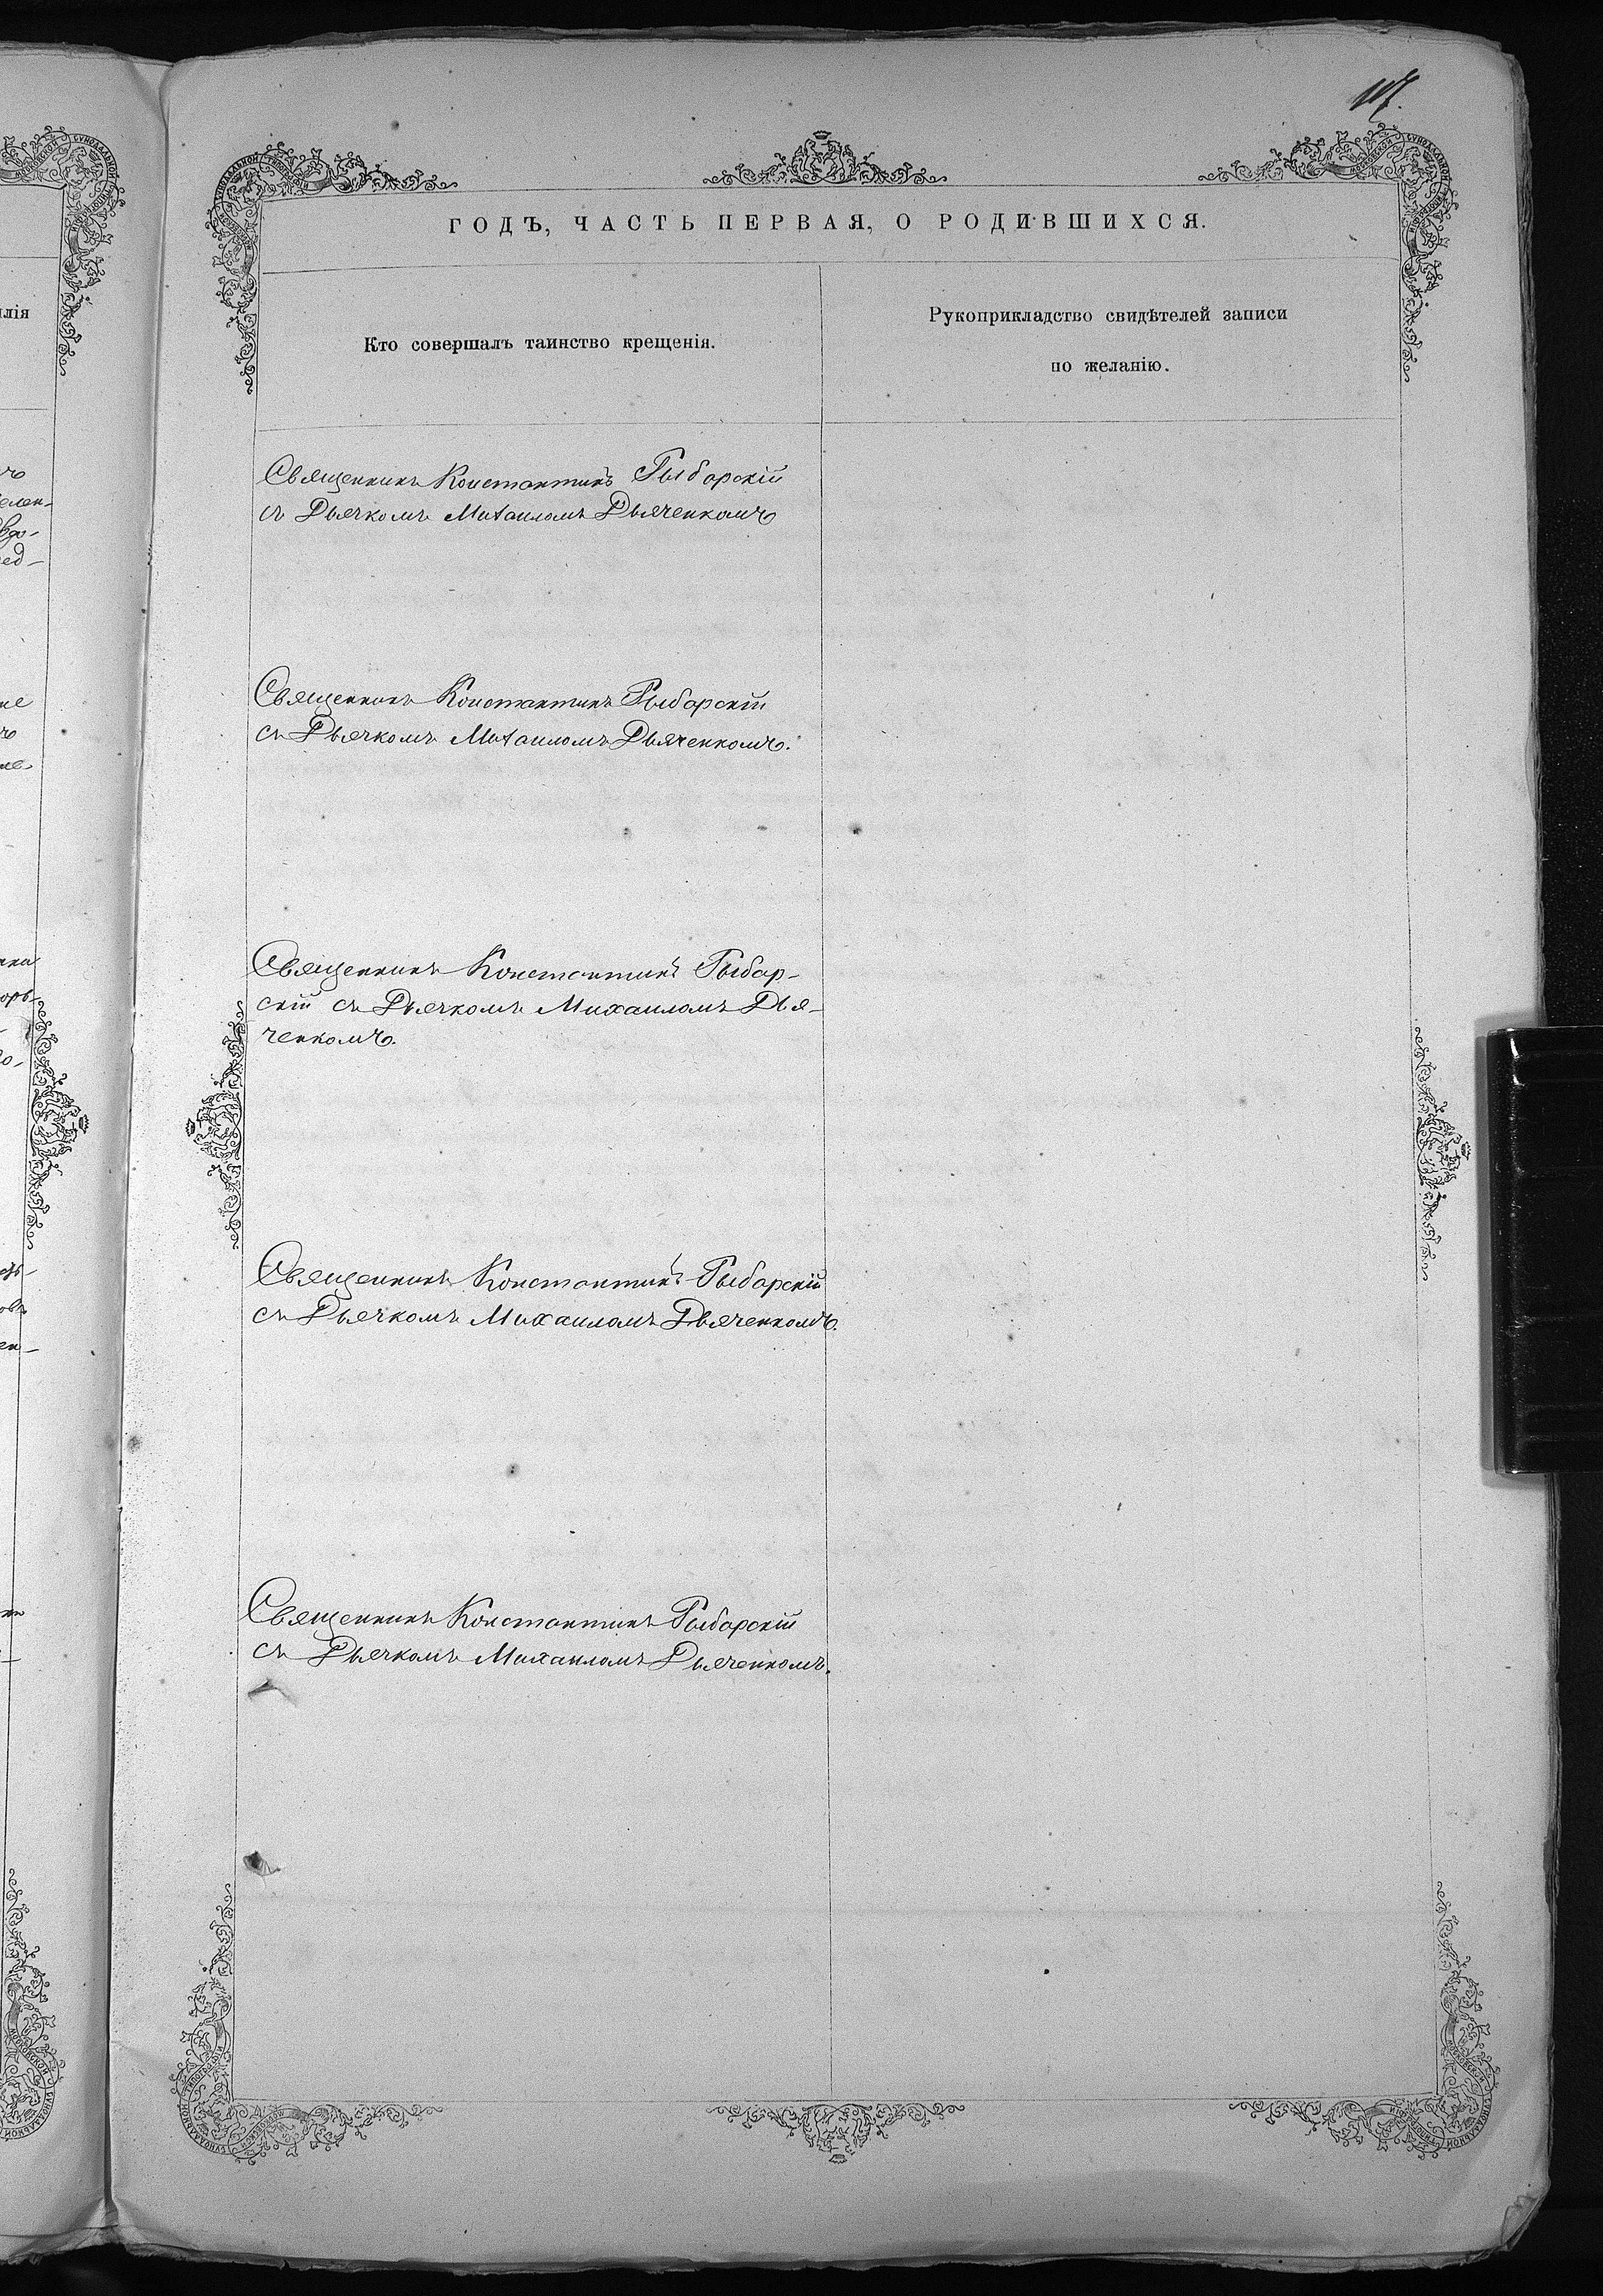 117.
ГОДЪ, ЧАСТЬ ПЕРВАЯ, О РОДИВШИХСЯ.
Кто совершалъ таинство крещенія.
Рукоприкладство свидѣтелей записи
по желанію.
Священникъ Константинъ Рыбарскій
съ Дьячкомъ Михаиломъ Дьяченкомъ
Священникъ Константинъ Рыбарскій
съ Дьячкомъ Михаиломъ Дьяченкомъ.
Священникъ Константинъ Рыбар-
скій съ Дьячкомъ Михаиломъ Дья-
ченкомъ.
Священникъ Константинъ Рыбарскій
съ Дьячкомъ Михаиломъ Дьяченкомъ.
Священникъ Константинъ Рыбарскій
съ Дьячкомъ Михаиломъ Дьяченкомъ.